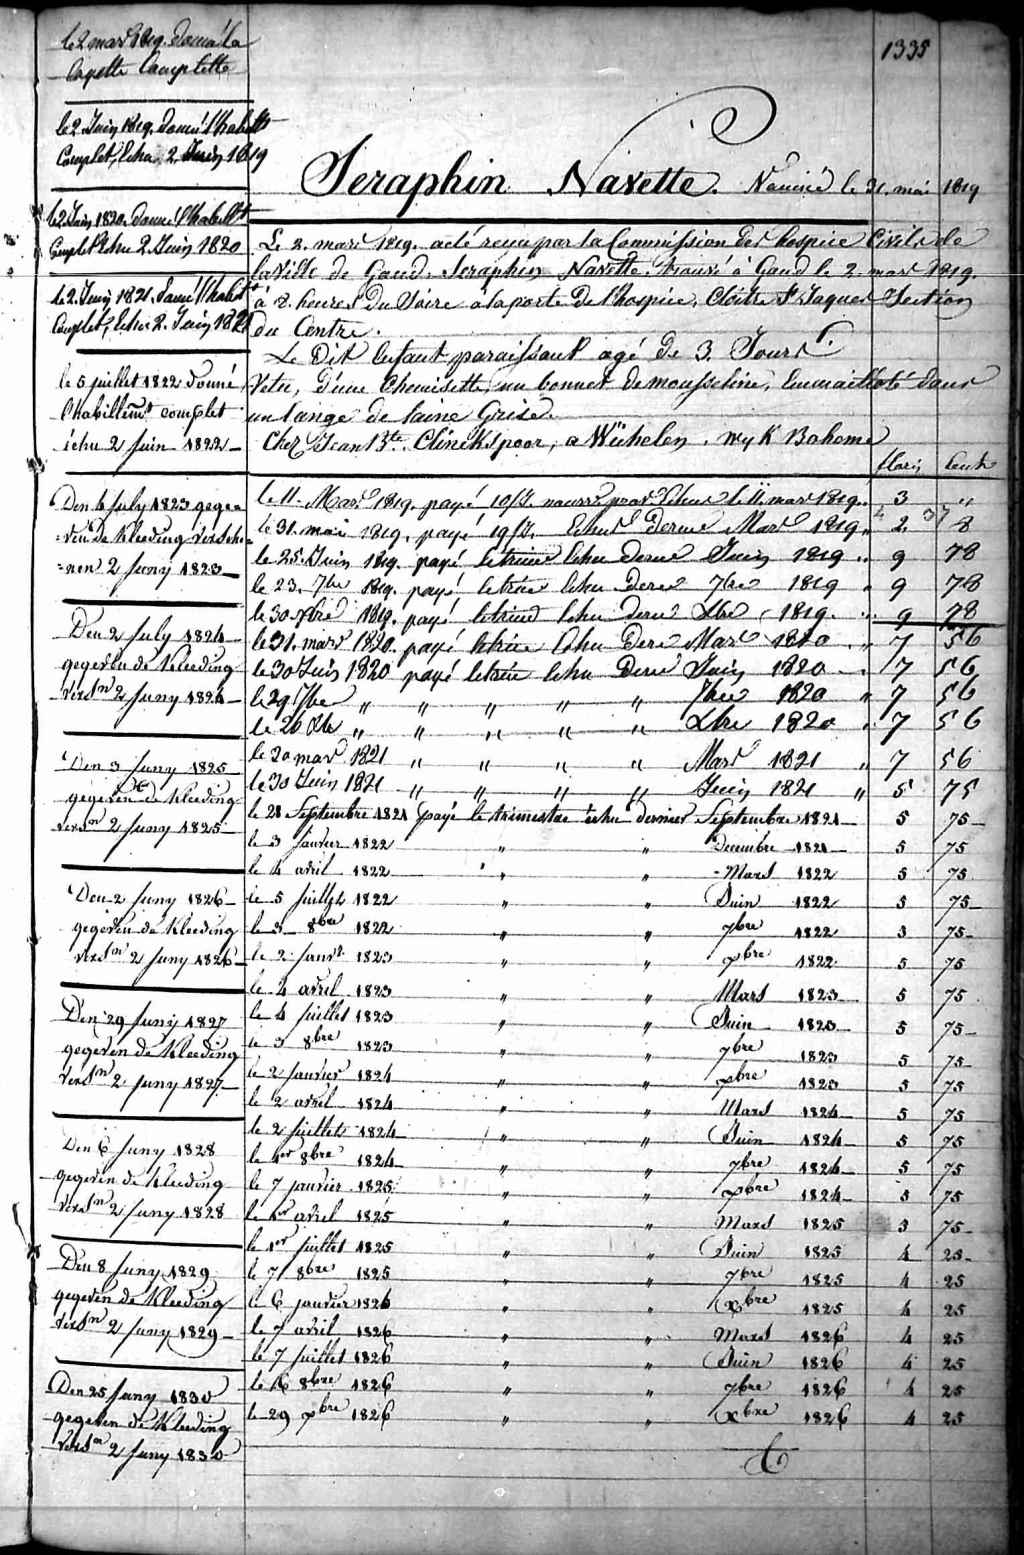 1335
Seraphin Navette. Vaciné le 31. mai 1819
Le 2. mars 1819. acté recu par la Commission des hospice Civils de
la Ville de Gand. Seraphin Navette. trouvé à Gand le 2. mars 1819.
à 8. heures Du Soire a la porte de l'hospice, Cloître St Jaques Section
du Centre.
Le Dit Enfant paraissant agé de 3. Jours.
Vetu, d'une Chemisette, un bonnet de mousseline, Emmailloté dans
un lange de laine Grise.
Chez Jean Bte. Clinckspoor, a Wichelen. wyk Boheme
floris Cents
le 2 mars 1819. donné la
layette Complette
le 2 Juin 1819. donné l'habillt
Complet, Echu 2. Juin 1819
le 2 Juin 1820. donné l'habillt
Complet Echu 2 Juin 1820
le 2 Juin 1821. donné l'habillt
Complet, Echu 2. Juin 1821
le 5 juillet 1822 donné
l'habillemt complet
échu 2 juin 1822
Den 6 July 1823 gege=
=ven de Kleeding versche=
=nen 2 Juny 1823
Den 2 July 1824
gegeven de Kleeding
versn 2 Juny 1824
Den 3 Juny 1825
gegeven de Kleeding
versn 2 Juny 1825
Den 2 Juny 1826
gegeven de Kleeding
versn 2 Juny 1826
Den 29 Juny 1827
gegeven de Kleeding
versn 2 Juny 1827
Den 6 Juny 1828
gegeven de Kleeding
versn 2 Juny 1828
Den 8 Juny 1829
gegeven de Kleeding
versn 2 Juny 1829
Den 25 Juny 1830
gegeven de Kleeding
versn 2 Juny 1830
le 11. Mars 1819. payé 10/J. nourr pour Echu le 11 mars 1819. 3 "
4 37
le 31. mai 1819. payé 19/J. Echus Dernier Mars 1819 2 8
le 25. Juin 1819. payé le trim Echu Derne Juin 1819 9 78
le 23. 7bre 1819. payé le trim Echu Dere 7bre 1819 9 78
le 30 Xbre 1819. payé le trim Echu dern Xbre 1819. 9 78
le 31. mars 1820. payé le trim Echu Dere Mars 1820 7 56
le 30 Juin 1820 payé le trim Echu Dere Juin 1820 7 56
le 29 7bre " " " " " 7bre 1820 " 7 56
le 20 Xbre " " " " " Xbre 1820 " 7 56
le 20 mars 1821 " " " " " Mars 1821 " 7 56
le 30 Juin 1821 " " " " " Juin 1821 " 5 75
le 28 Septembre 1821 payé le trimestre échu dernier Septembre 1821 5 75
le 3 janvier 1822 " " Decembre 1821 5 75
le 4 avril 1822 " " Mars 1822 5 75
le 5 juillet 1822 " " Juin 1822 5 75
le 3 8bre 1822 " " 7bre 1822 5 75
le 2 janvr 1823 " " xbre 1822 5 75
le 4 avril 1823 " " Mars 1823 5 75
le 4 juillet 1823 " " Juin 1823 5 75
le 3 8bre 1823 " " 7bre 1823 5 75
le 2 janvier 1824 " " xbre 1823 5 75
le 2 avril 1824 " " Mars 1824 5 75
le 2 juillet 1824 " " Juin 1824 5 75
le 1er 8bre 1824 " " 7bre 1824 5 75
le 7 janvier 1825 " " xbre 1824 5 75
le 1er avril 1825 " " Mars 1825 5 75
le 1er juillet 1825 " " Juin 1825 4 25
le 7 8bre 1825 " " 7bre 1825 4 25
le 6 janvier 1826 " " Xbre 1825 4 25
le 7 avril 1826 " " Mars 1826 4 25
le 7 juillet 1826 " " Juin 1826 4 25
le 16 8bre 1826 " " 7bre 1826 4 25
le 29 xbre 1826 " " Xbre 1826 4 25